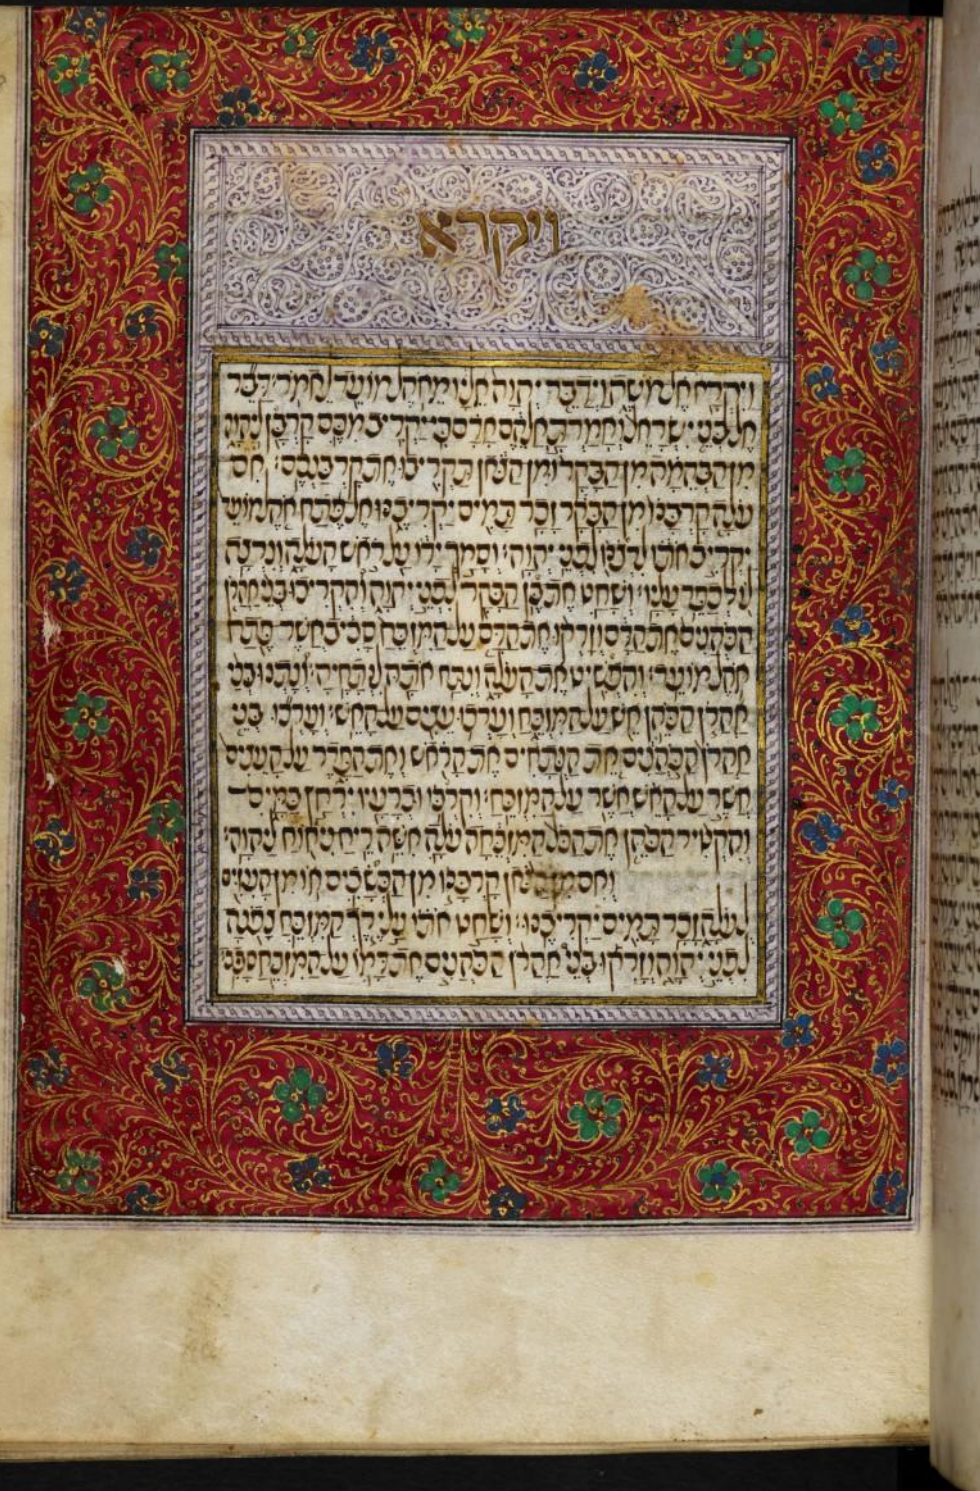 ויקרא
ויקרא אל משה וידבר יהוה אליו מאהל מועד לאמר דבר
אל בני ישראל ואמרת אלהם אדם כי יקריב מכם קרבן ליהוה
מן הבהמה מן הבקר ומן הצאן תקריבו את קרבנכם אם
עלה קרבנו מן הבקר זכר תמים יקריבנו אל פתח אהל מועד
יקריב אתו לרצנו לפני יהוה וסמך ידו על ראש העלה ונרצה
לו לכפר עליו ושחט את בן הבקר לפני יהוה והקריבו בני אהרן
הכהנים את הדם וזרקו את הדם על המזבח סביב אשר פתח
אהל מועד והפשיט את העלה ונתח אתה לנתחיה ונתנו בני
אהרן הכהן אש על המזבח וערכו עצים על האש וערכו בני
אהרן הכהנים את הנתחים את הראש ואת הפדר על העצים
אשר על האש אשר על המזבח וקרבו וכרעיו ירחץ במים
והקטיר הכהן את הכל המזבחה עלה אשה ריח ניחוח ליהוה
ואם מן הצאן קרבנו מן הכשבים או מן העזים
לעלה זכר תמים יקריבנו ושחט אתו על ירך המזבח צפנה
לפני יהוה וזרקו בני אהרן הכהנים את דמו על המזבח סביב